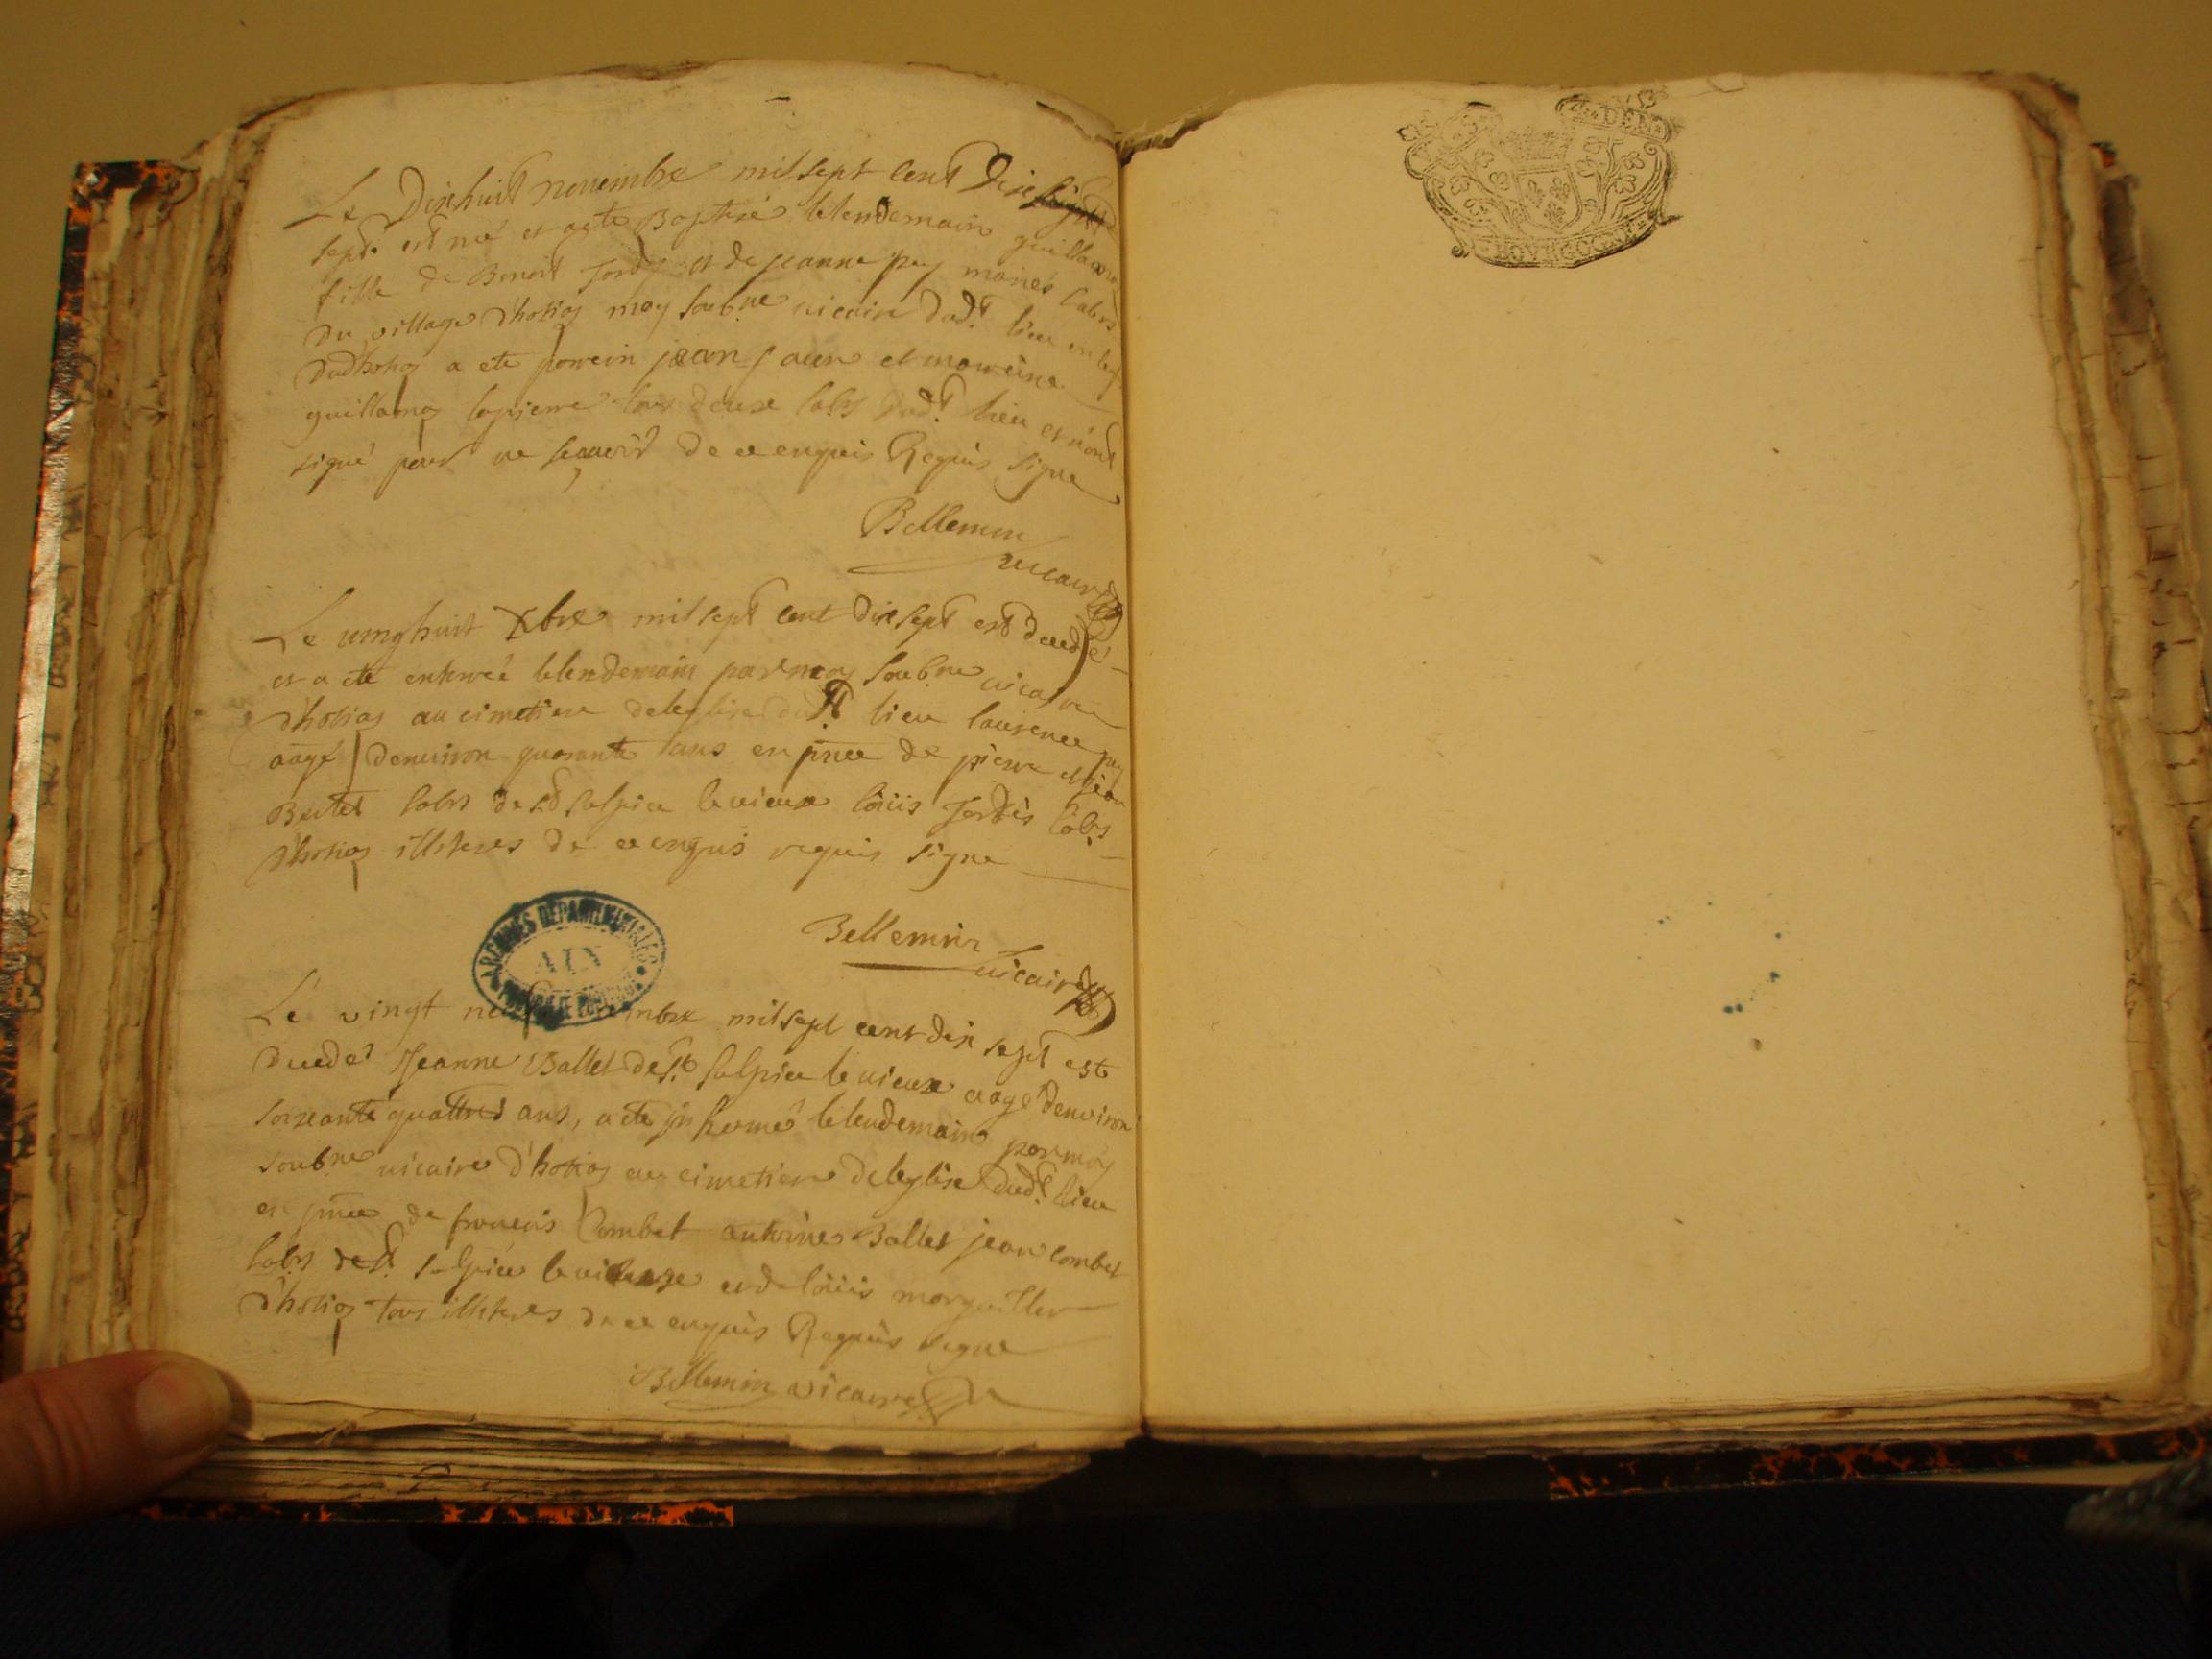 Le Dixhuit novembre mil sept cent Dixe
sept est né et a eté Baptisé le lendemain guillauma
fille de Benoit Jordy et de jeanne puy mariés labrs
Du village d'hotiag moy soubne vicaire dudt lieu en legse
Dudhotiag a eté parein jean et mareine
guillamaz lapierre tous deuxe labrs dudt lieu et n'ont
signé pour ne scavoir de ce enquis Requis signe
Bellemin
vicaire
Le vinghuit Xbre mil sept cent Dix sept est decedé
et a eté enterreé le lendemain par moy soubne vicaire
d'hotiag au cimetiere de leglise dudt lieu laurence puy
aagé denviron quarante ans en pnce de pierre et jean
Burtet labrs de St sulpice le vieuxe loüis Jordy labrs
d'hotiag illiteres de ce enquis requis signe
ARCHIVES DEPARTEMENTALES
AIN
Bellemin
vicaire
Le vingt mil sept cent dix sept este
decedé Jeanne Ballet de St Sulpice le vieuxe aagé denviron
soixante quattres ans, a eté inhumé le lendemain par moy
soubne vicaire d'hotiag au cimetiere de leglise dudt lieu
en pnce de francois Combet antoine Ballet jean combet
labrs de St sulpice le vieuxe et de loüis marguillier
d'hotiag tous illiteres de ce enquis Requis signe
Bellemin vicaire
DEN
BOVRGOGNE